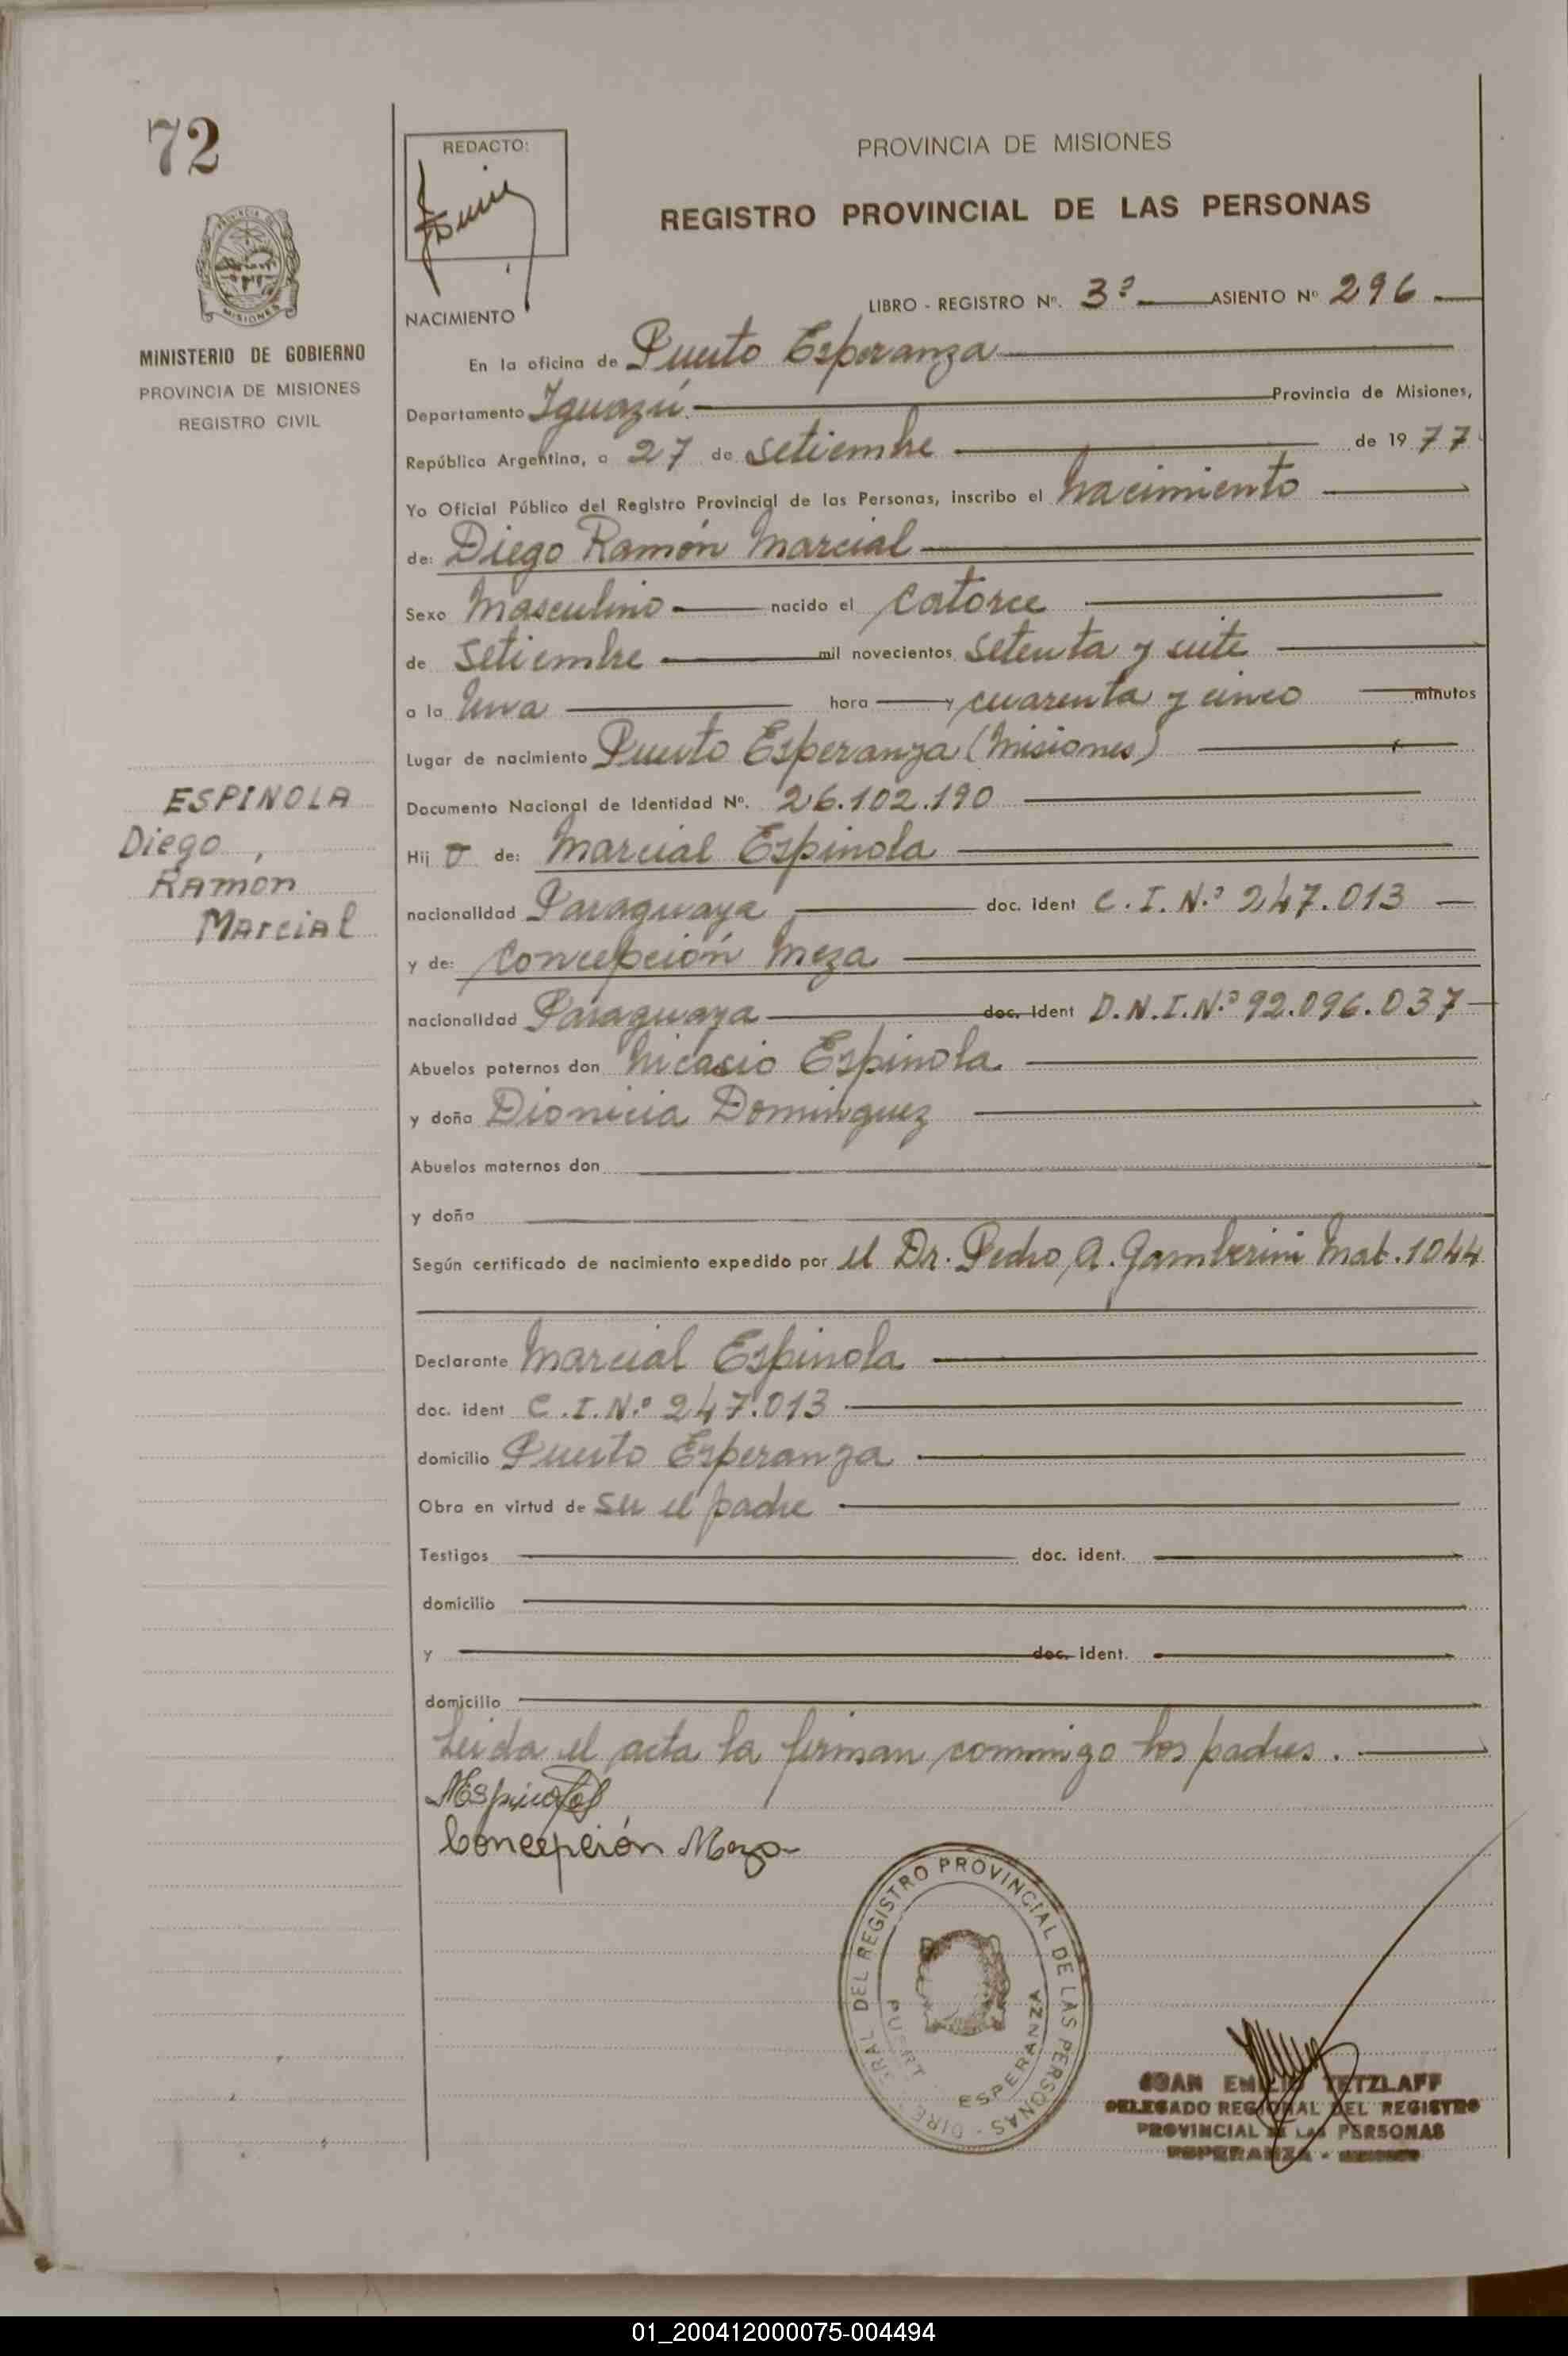 72
REDACTO:
PROVINCIA DE MISIONES
REGISTRO PROVINCIAL DE LAS PERSONAS
MINISTERIO DE GOBIERNO
PROVINCIA DE MISIONES
REGISTRO CIVIL
LIBRO - REGISTRO Nº. 3º ASIENTO Nº 296
NACIMIENTO
En la oficina de Puerto Esperanza
Departamento Iguazú. Provincia de Misiones,
República Argentina, a 27 de setiembre de 1977
Yo Oficial Público del Registro Provincial de las Personas, inscribo el nacimiento
de: Diego Ramón Marcial
Sexo Masculino nacido el catorce
de setiembre mil novecientos setenta y siete
a la una hora y cuarenta y cinco minutos
Lugar de nacimiento Puerto Esperanza (Misiones)
Documento Nacional de Identidad Nº. 26.102.190
ESPINOLA
Diego,
Ramón
Marcial
Hij o de: Marcial Espinola
nacionalidad Paraguaya doc. ident C.I.N.º 247.013
y de: Concepción Meza
nacionalidad Paraguaya doc. ident D.N.I.N.º 92.096.037
Abuelos paternos don Nicasio Espinola
y doña Dionicia Dominguez
Abuelos maternos don
y doña
Según certificado de nacimiento expedido por el Dr. Pedro A. Gamberini Mat. 1044
Declarante Marcial Espinola
doc. ident C.I.N.º 247.013
domicilio Puerto Esperanza
Obra en virtud de ser el padre
Testigos doc. ident.
domicilio
y doc. ident.
domicilio
Leida el acta la firman conmigo los padres.
MEspinola
Concepción Meza
DEL REGISTRO PROVINCIAL DE LAS PERSONAS
ESPERANZA
JUAN EMILIO TETZLAFF
DELEGADO REGIONAL DEL REGISTRO
PROVINCIAL DE LAS PERSONAS
ESPERANZA
01_200412000075-004494